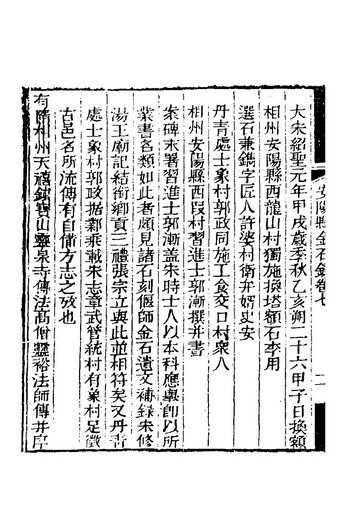 大宋紹聖元年甲戌歲季秋乙亥朔二十六甲子日換額
相州安陽縣西龍山村獨施換塔額石李用
選石兼鐫字匠人許婆村衛幷婿史安
丹青處士象村郭政同施工食交口村衆人
相州安陽縣西叚村習進士郭漸撰幷書
案碑末署習進士郭漸蓋朱時士人以本科應舉卽以所
業書名類如此者頗見諸石刻偃師金石遺文補錄朱修
湯王廟記結銜鄉貢三禮張宗立與此道相符矣又丹青
處士象村郭政据鄴乘載宋志章武管統村有象村足徵
古邑名所流傳有自備方志之攷也
有隋相州天禧鎮寶山靈泉寺傳法高僧靈裕法師傳幷序
安陽縣金石錄卷七